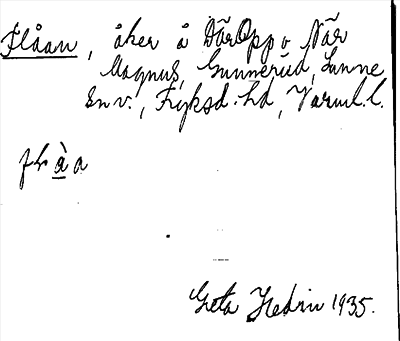 Flåan, åker å Där Oppo När
Magnus, Gunnerud, Sunne
sn v., Fryksd. hd, Värml. l.
flàa
Greta Hedin 1935.